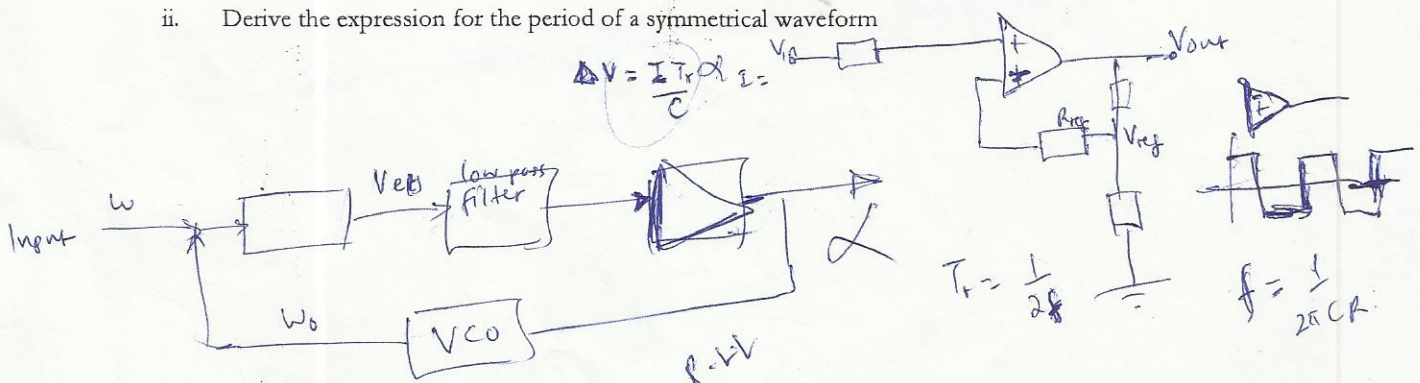 ii. Derive the expression for the period of a symmetrical waveform
ΔV = I Tr / C
I =
Vout
Rref
Vref
Input
ω
low pass
filter
VCO
ω₀
α
Tr = 1 / 2f
f = 1 / 2π CR